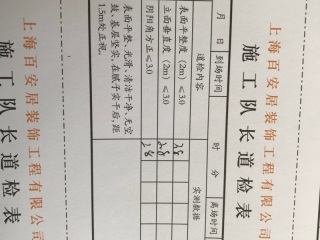 上海百安居装饰工程有限公司
施工队长道检表
月 日 到场时间 时 分 离场时间
道检内容 实测数据
表面平整度（2m）≤3.0 2.8
立面垂直度（2m）≤3.0 2.8
阴阳角方正≤3.0 2.8
表面平整、光滑、清洁干净、无空
鼓、基层坚实，在腻子实干后，距
1.5m处正视。
上海百安居装饰工程有限公司
施工队长道检表